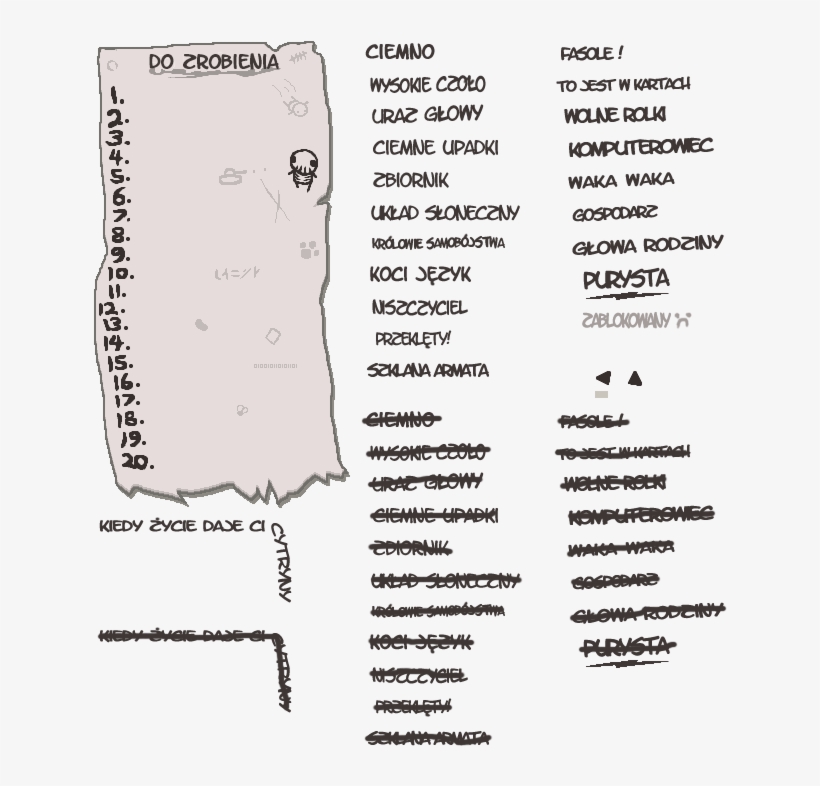 DO ZROBIENIA
1.
2.
3.
4.
5.
6.
7.
8.
9.
10.
11.
12.
13.
14.
15.
16.
17.
18.
19.
20.
KIEDY ŻYCIE DAJE CI CYTRYNY
KIEDY ŻYCIE DAJE CI CYTRYNY
CIEMNO
WYSOKIE CZOŁO
URAZ GŁOWY
CIEMNE UPADKI
ZBIORNIK
UKŁAD SŁONECZNY
KRÓLOWIE SAMOBÓJSTWA
KOCI JĘZYK
NISZCZYCIEL
PRZEKLĘTY!
SZKLANA ARMATA
CIEMNO
WYSOKIE CZOŁO
URAZ GŁOWY
CIEMNE UPADKI
ZBIORNIK
UKŁAD SŁONECZNY
KRÓLOWIE SAMOBÓJSTWA
KOCI JĘZYK
NISZCZYCIEL
PRZEKLĘTY!
SZKLANA ARMATA
FASOLE !
TO JEST W KARTACH
WOLNE ROLKI
KOMPUTEROWIEC
WAKA WAKA
GOSPODARZ
GŁOWA RODZINY
PURYSTA
ZABLOKOWANY
FASOLE !
TO JEST W KARTACH
WOLNE ROLKI
KOMPUTEROWIEC
WAKA WAKA
GOSPODARZ
GŁOWA RODZINY
PURYSTA